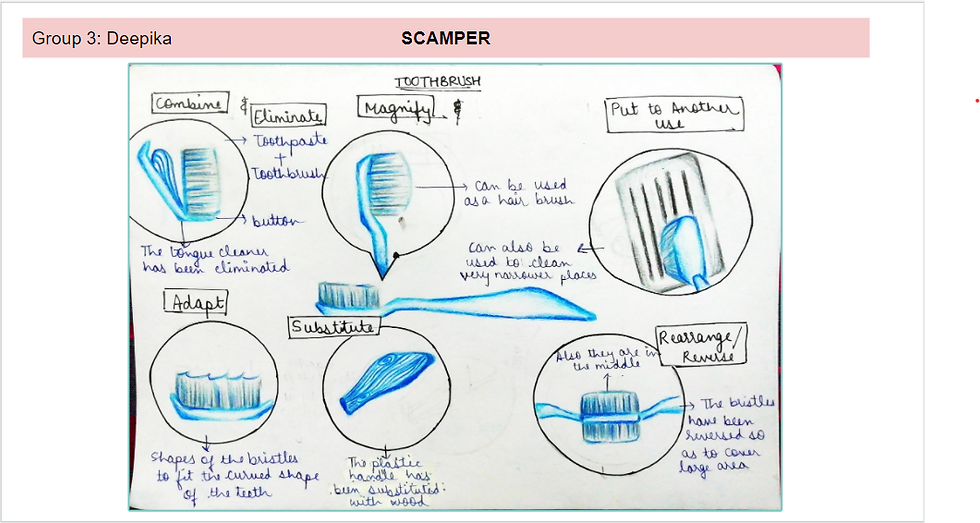 Group 3: Deepika
SCAMPER
TOOTHBRUSH
Combine
&
Eliminate
Toothpaste
+
Toothbrush
button
The tongue cleaner
has been eliminated
Magnify
&
can be used
as a hair brush
Put to Another
use
can also be
used to clean
very narrower places
Adapt
Shapes of the bristles
to fit the curved shape
of the teeth
Substitute
The plastic
handle has
been substituted
with wood
Rearrange/
Reverse
Also they are in
the middle
The bristles
have been
reversed so
as to cover
large area